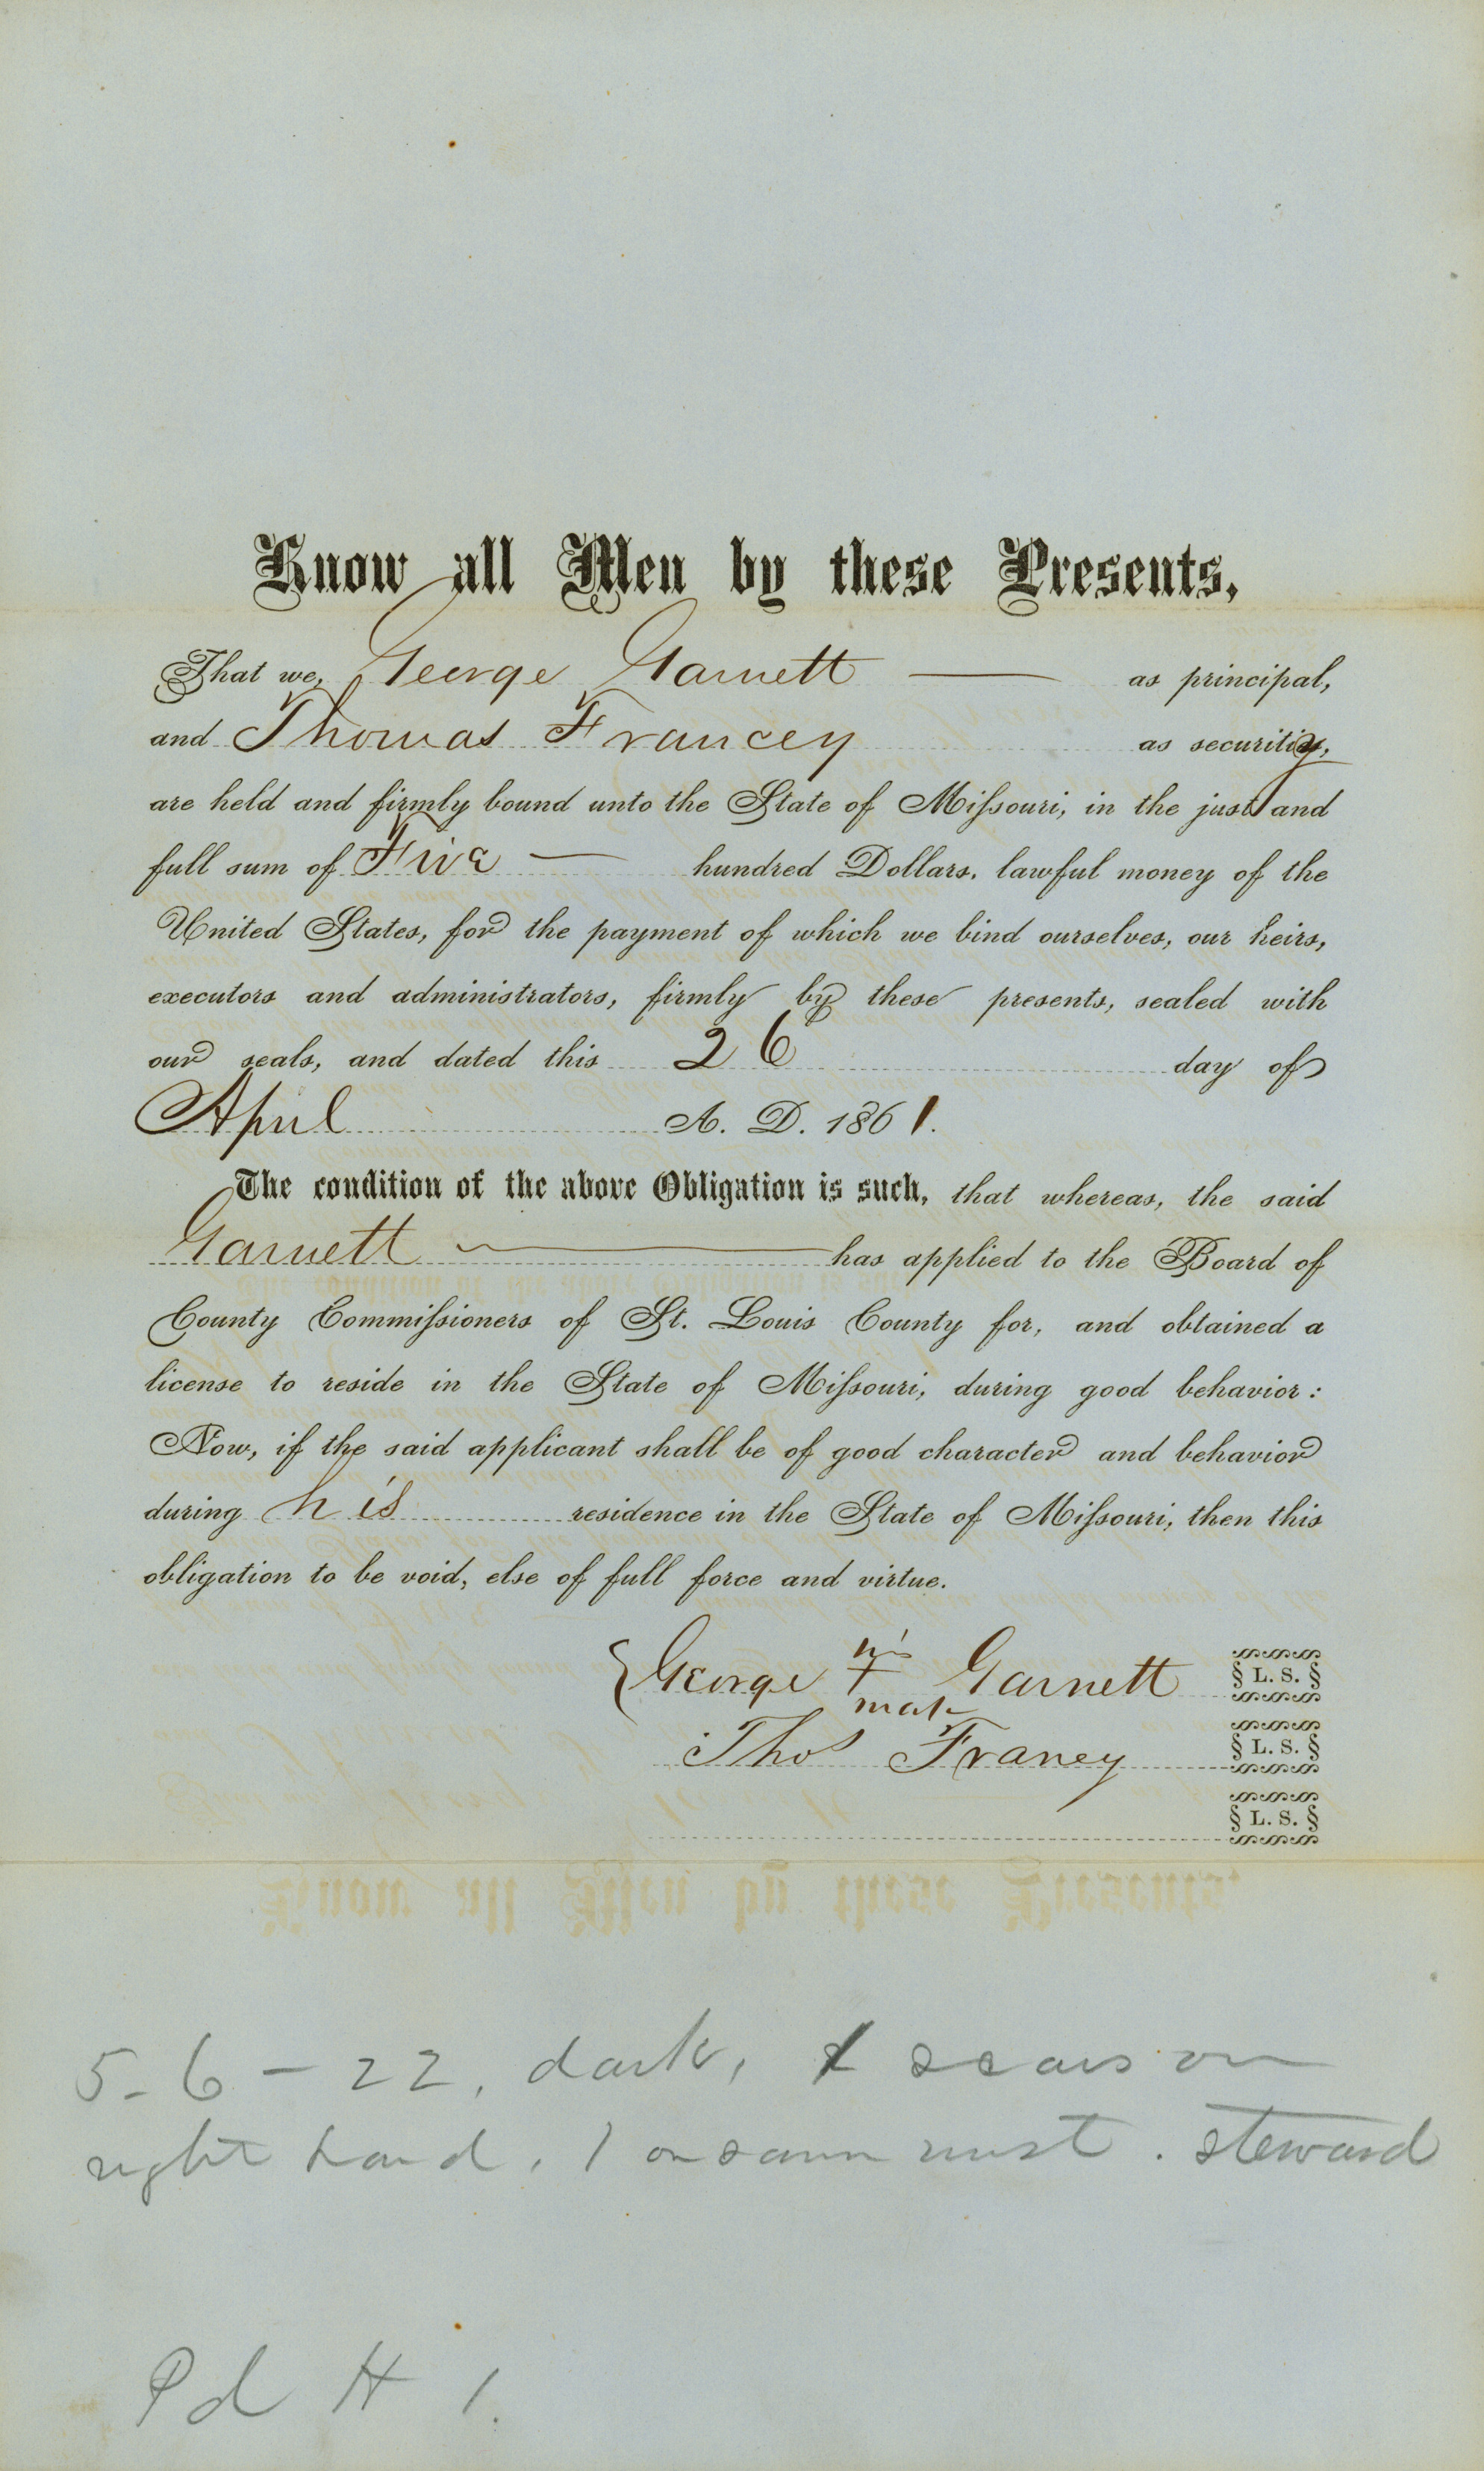 Know all Men by these Presents,
That we, George Garnett — as principal,
and Thomas Francey as security,
are held and firmly bound unto the State of Miſsouri, in the just and
full sum of Five — hundred Dollars, lawful money of the
United States, for the payment of which we bind ourselves, our heirs,
executors and administrators, firmly by these presents, sealed with
our seals, and dated this 26 day of
April A. D. 1861.
The condition of the above Obligation is such, that whereas, the said
Garnett — has applied to the Board of
County Commiſsioners of St. Louis County for, and obtained a
license to reside in the State of Miſsouri, during good behavior:
Now, if the said applicant shall be of good character and behavior
during his residence in the State of Miſsouri, then this
obligation to be void, else of full force and virtue.
his
George + Garnett § L. S. §
mark
Thos Franey § L. S. §
§ L. S. §
5-6-22, dark, scars on
right hand, 1 on same wrist. steward
Pd H 1.